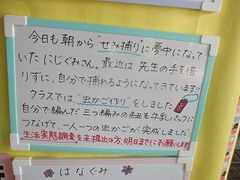 今日も朝から"せみ捕り"に夢中になって
いたにじぐみさん。最近は先生の手を借
りずに、自分で捕れるようになってきています!!
クラスでは"虫かご作り"をしました。
自分で編んだ三つ編みの紐を牛乳パックに
つなげて、一人一つの虫かごが完成しました♪
生活実態調査を未提出の方、明日までにお願いします。
はなぐみ